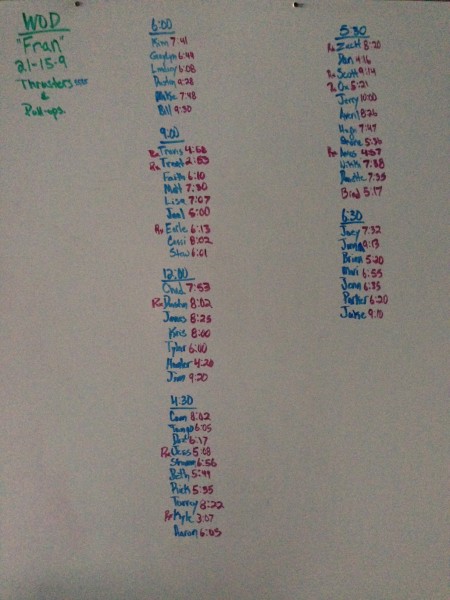 WOD
"Fran"
21-15-9
Thrusters
&
Pull-ups.
6:00
Kim 7:41
6:49
Lindsay 6:08
Dustin 9:28
Mike 7:48
Bill 9:50
9:00
Rx Travis 4:58
Rx Trent 2:53
Faith 6:10
Matt 7:30
Lisa 7:07
Joel 6:00
Rx Exile 6:13
Cassi 8:02
Stew 6:01
12:00
Chad 7:53
Rx Dustin 8:02
James 8:25
Kris 8:00
Tyler 6:00
Hunter 4:20
Jim 9:20
4:30
Cam 8:02
6:05
6:17
Rx Jess 5:08
Shawn 6:56
Beth 5:49
Rick 5:55
Tammy 8:22
Rx Kyle 3:07
Aaron 6:03
5:30
Rx Zach 8:20
4:16
Rx Scott 9:14
Rx Ox 5:21
Jerry 10:00
April 8:26
Hugo 7:47
5:36
Rx 4:37
Nikki 7:38
7:35
Bird 5:17
6:30
Joey 7:32
9:13
Brian 5:20
6:55
Jenn 6:35
Parker 6:20
Jake 9:10